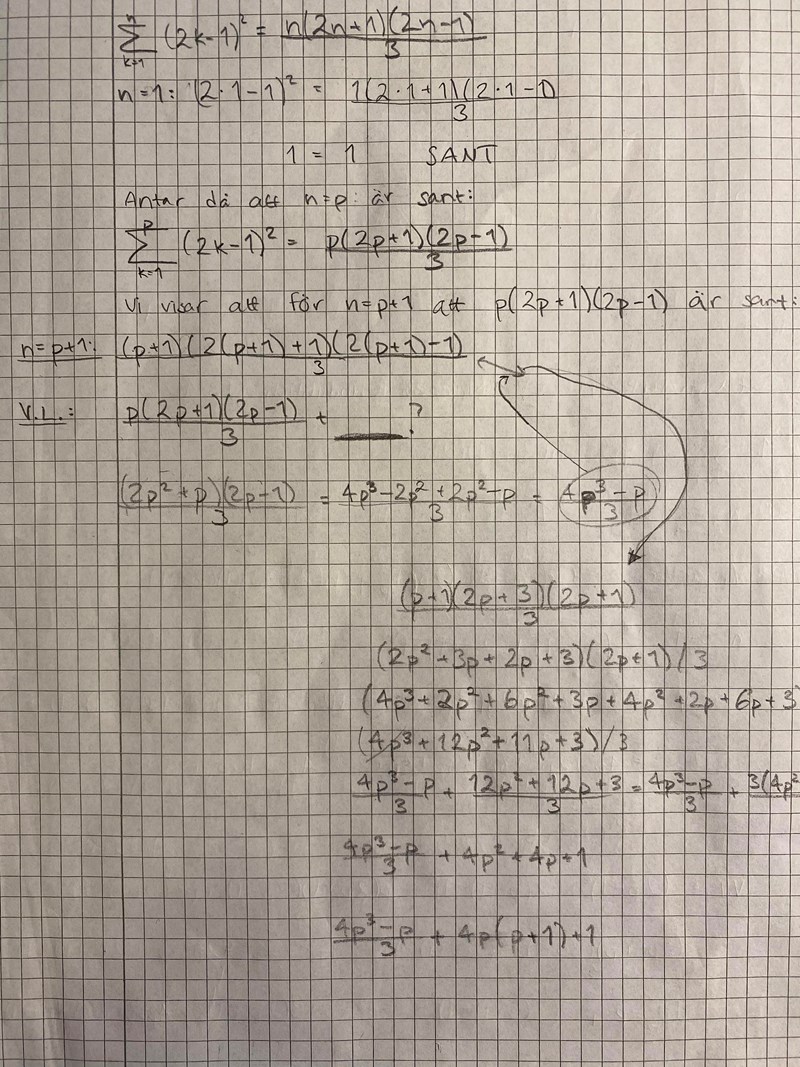 n
∑ (2k-1)² = n(2n+1)(2n-1)/3
k=1
n=1: (2·1-1)² = 1(2·1+1)(2·1-1)/3
1 = 1 SANT
Antar då att n=p: är sant:
p
∑ (2k-1)² = p(2p+1)(2p-1)/3
k=1
Vi visar att för n=p+1 att p(2p+1)(2p-1) är sant:
n=p+1: (p+1)(2(p+1)+1)(2(p+1)-1)/3
V.L.: p(2p+1)(2p-1)/3 + ___?
(2p²+p)(2p-1)/3 = 4p³-2p²+2p²-p/3 = 4p³-p/3
(p+1)(2p+3)(2p+1)/3
(2p²+3p+2p+3)(2p+1)/3
(4p³+2p²+6p²+3p+4p²+2p+6p+3
(4p³+12p²+11p+3)/3
4p³-p/3 + 12p²+12p+3/3 = 4p³-p/3 + 3(4p²
4p³-p/3 + 4p²+4p+1
4p³-p/3 + 4p(p+1)+1